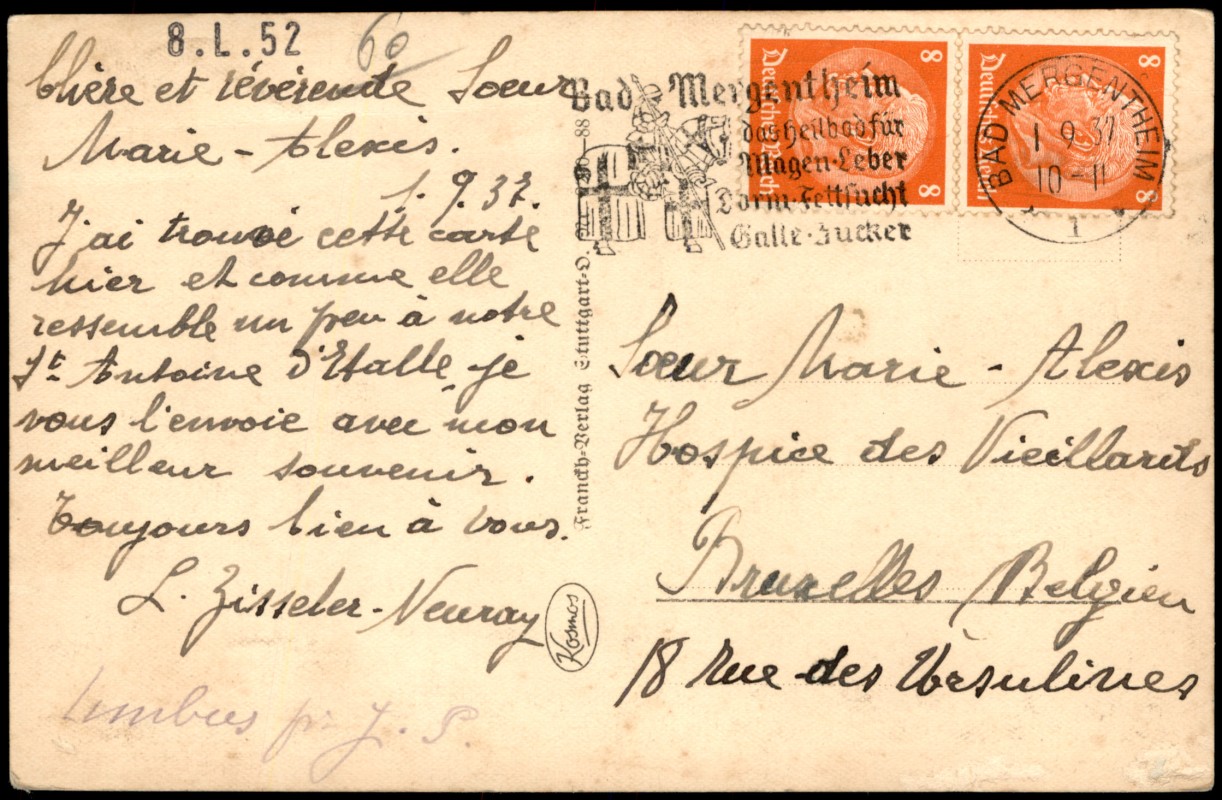 8.L.52 60
Chère et révérende Sœur
Marie-Alexis.
1.9.37.
J'ai trouvé cette carte
hier et comme elle
ressemble un peu à notre
St Antoine d'Etalle je
vous l'envoie avec mon
meilleur souvenir.
Toujours bien à vous.
L. Zisseler-Neuray
J. P.
Franckh-Verlag Stuttgart-O.
88
Kosmos
Bad Mergentheim
das Heilbad für
Magen·Leber
Darm·Fettsucht
Galle·Zucker
Deutsches Reich
8 8
Deutsches Reich
8 8
BAD MERGENTHEIM
1 9.37
10-11
1
Sœur Marie-Alexis
Hospice des Vieillards
Bruxelles Belgien
18 rue des Ursulines